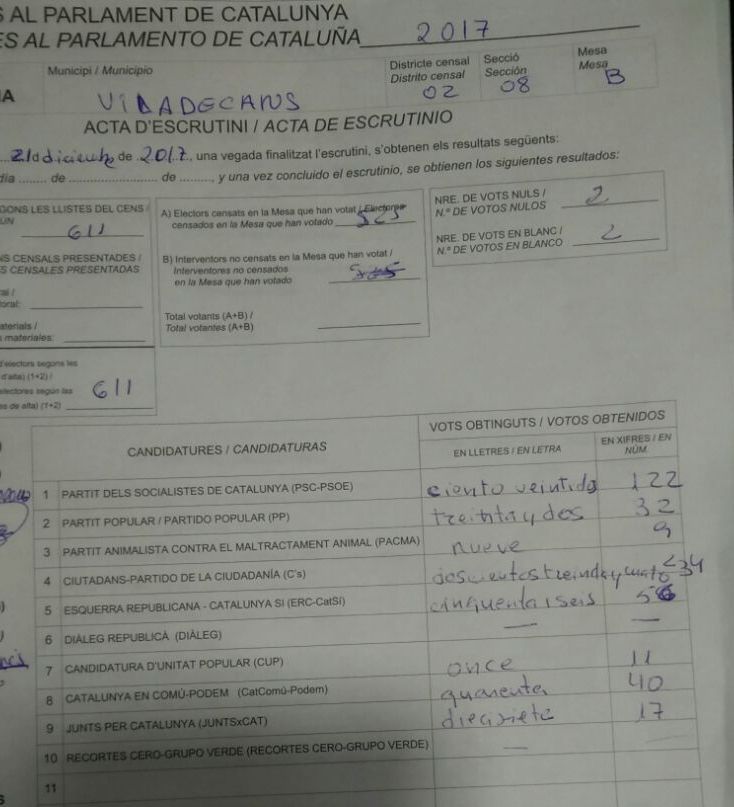 S AL PARLAMENT DE CATALUNYA
ES AL PARLAMENTO DE CATALUÑA 2017
Municipi / Municipio
Districte censal
Distrito censal
Secció
Sección
Mesa
Mesa
IA VILADECANS 02 08 B
ACTA D'ESCRUTINI / ACTA DE ESCRUTINIO
... 21 d diciembre de .2017., una vegada finalitzat l'escrutini, s'obtenen els resultats següents:
día ........ de ........................ de ........, y una vez concluido el escrutinio, se obtienen los siguientes resultados:
GONS LES LLISTES DEL CENS /
ÚN
611
A) Electors censats en la Mesa que han votat / Electores
censados en la Mesa que han votado 525
NRE. DE VOTS NULS /
N.º DE VOTOS NULOS 2
NRE. DE VOTS EN BLANC /
N.º DE VOTOS EN BLANCO 2
NS CENSALS PRESENTADES /
S CENSALES PRESENTADAS
B) Interventors no censats en la Mesa que han votat /
Interventores no censados
en la Mesa que han votado
ral /
toral:
aterials /
s materiales:
Total votants (A+B) /
Total votantes (A+B)
d'electors segons les
d'alta) (1+2) /
electores según las
es de alta) (1+2) 611
CANDIDATURES / CANDIDATURAS
VOTS OBTINGUTS / VOTOS OBTENIDOS
EN LLETRES / EN LETRA
EN XIFRES / EN
NÚM.
1 PARTIT DELS SOCIALISTES DE CATALUNYA (PSC-PSOE) ciento veintidos 122
2 PARTIT POPULAR / PARTIDO POPULAR (PP) treinta y dos 32
3 PARTIT ANIMALISTA CONTRA EL MALTRACTAMENT ANIMAL (PACMA) nueve 9
4 CIUTADANS-PARTIDO DE LA CIUDADANÍA (C's) doscientos treinda y cuatro 234
5 ESQUERRA REPUBLICANA - CATALUNYA SÍ (ERC-CatSí) cinquenta i seis 56
6 DIÀLEG REPUBLICÀ (DIÀLEG) — —
7 CANDIDATURA D'UNITAT POPULAR (CUP) once 11
8 CATALUNYA EN COMÚ-PODEM (CatComú-Podem) quarenta 40
9 JUNTS PER CATALUNYA (JUNTSxCAT) diecisiete 17
10 RECORTES CERO-GRUPO VERDE (RECORTES CERO-GRUPO VERDE) —
11